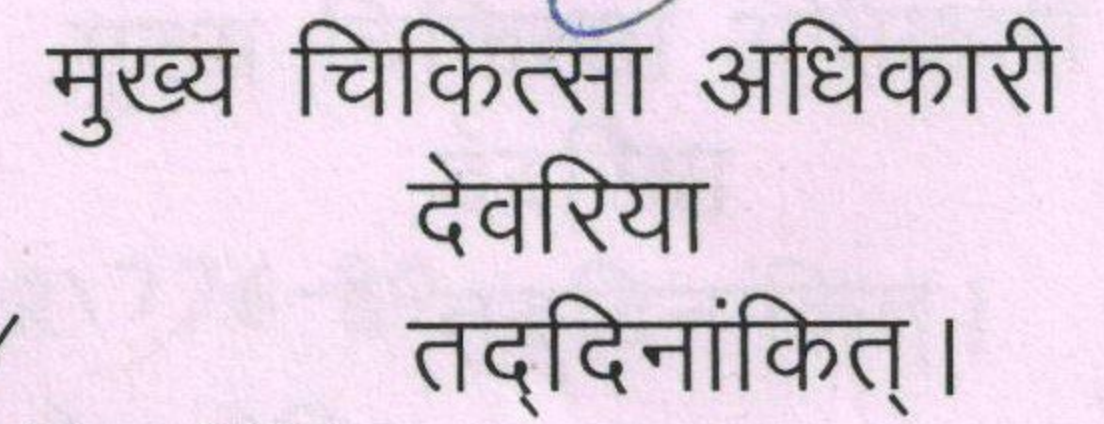 मुख्य चिकित्सा अधिकारी
देवरिया
तद्‌दिनांकित्।